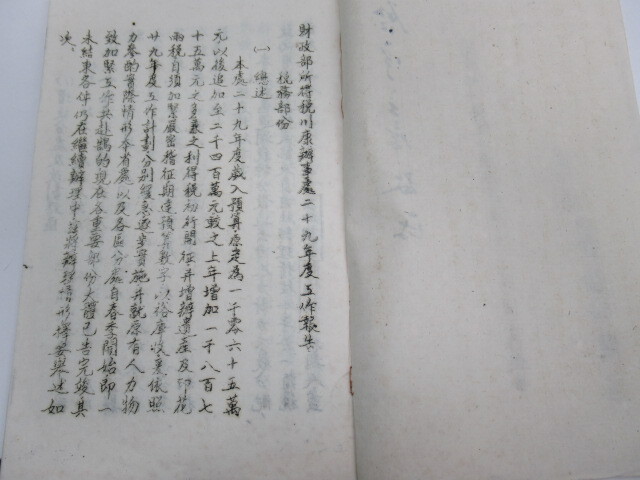 財政部所得稅川康辦事處二十九年度工作報告
稅務部份
(一) 總述
本處二十九年度歲入預算原定為一千零六十五萬
元以後追加至二千四百萬元較之上年增加一千八百七
十五萬元之多益之利得稅初行開征并增辦遺產及印花
兩稅自須加緊嚴密稽征期達預算數字以裕庫收爰依照
廿九年度工作計劃分別緩急逐步實施并就原有人力物
力參酌實際情形本省處以及各區分處自春季開始即一
致加緊工作共赴鵠的現在各重要部份大體已告完竣其
未結束各件仍在繼續辦理中茲將辦理情形擇要舉述如
次